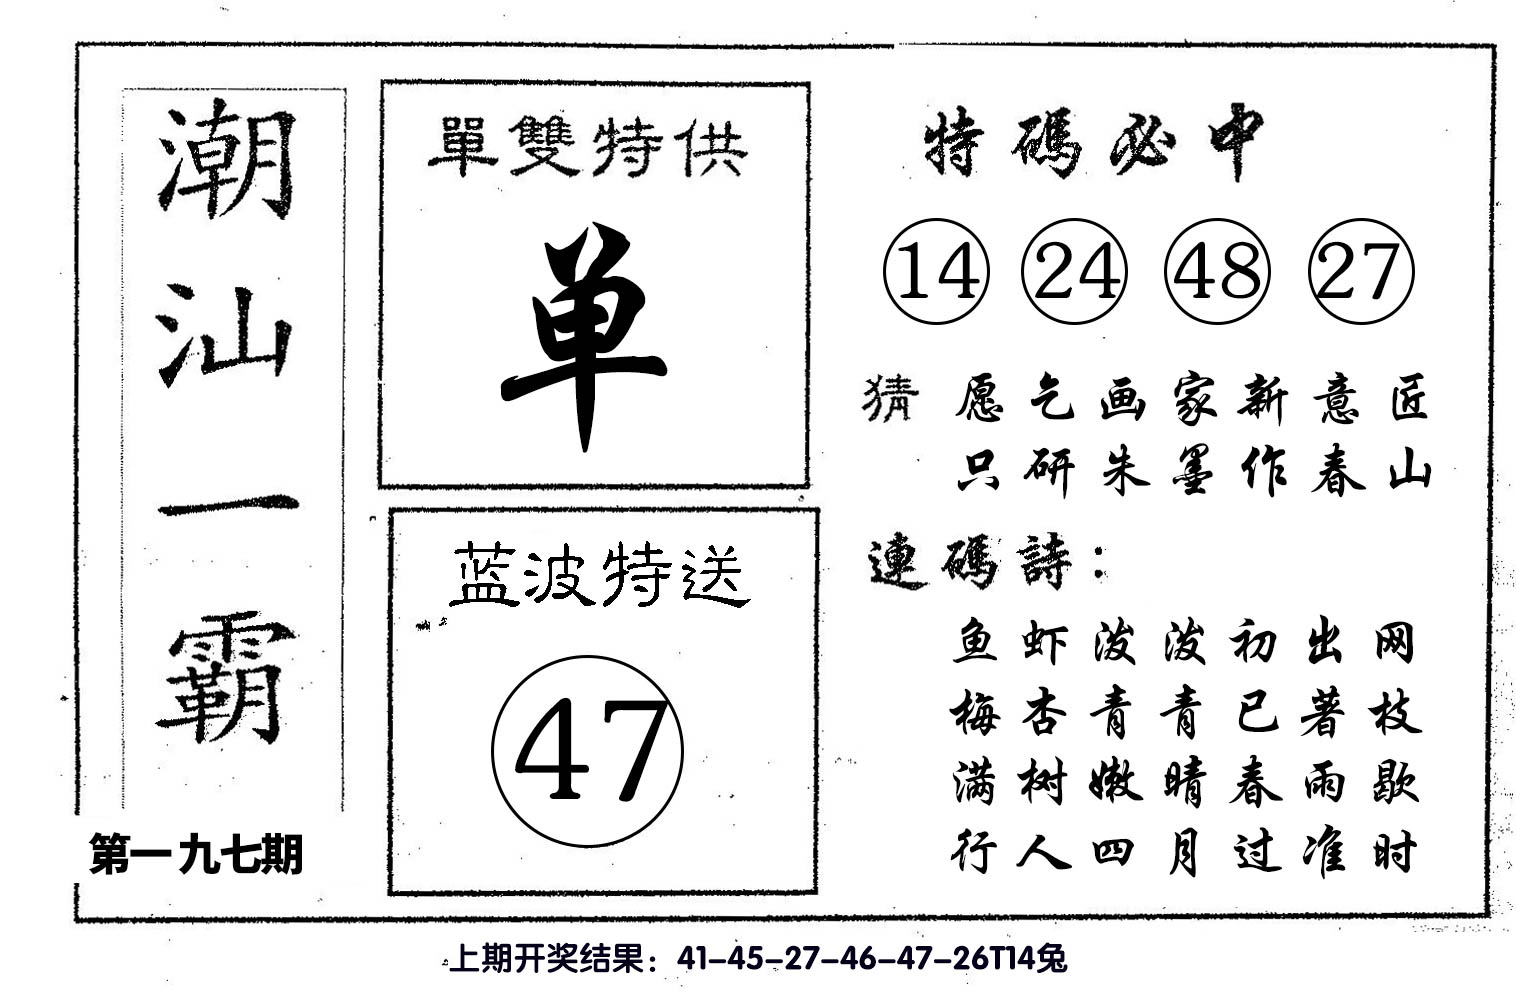 潮汕一霸
第一九七期
單雙特供
单
蓝波特送
47
特碼必中
14 24 48 27
猜 愿乞画家新意匠
只研朱墨作春山
連碼詩：
鱼虾泼泼初出网
梅杏青青已著枝
满树嫩晴春雨歇
行人四月过准时
上期开奖结果：41-45-27-46-47-26T14兔